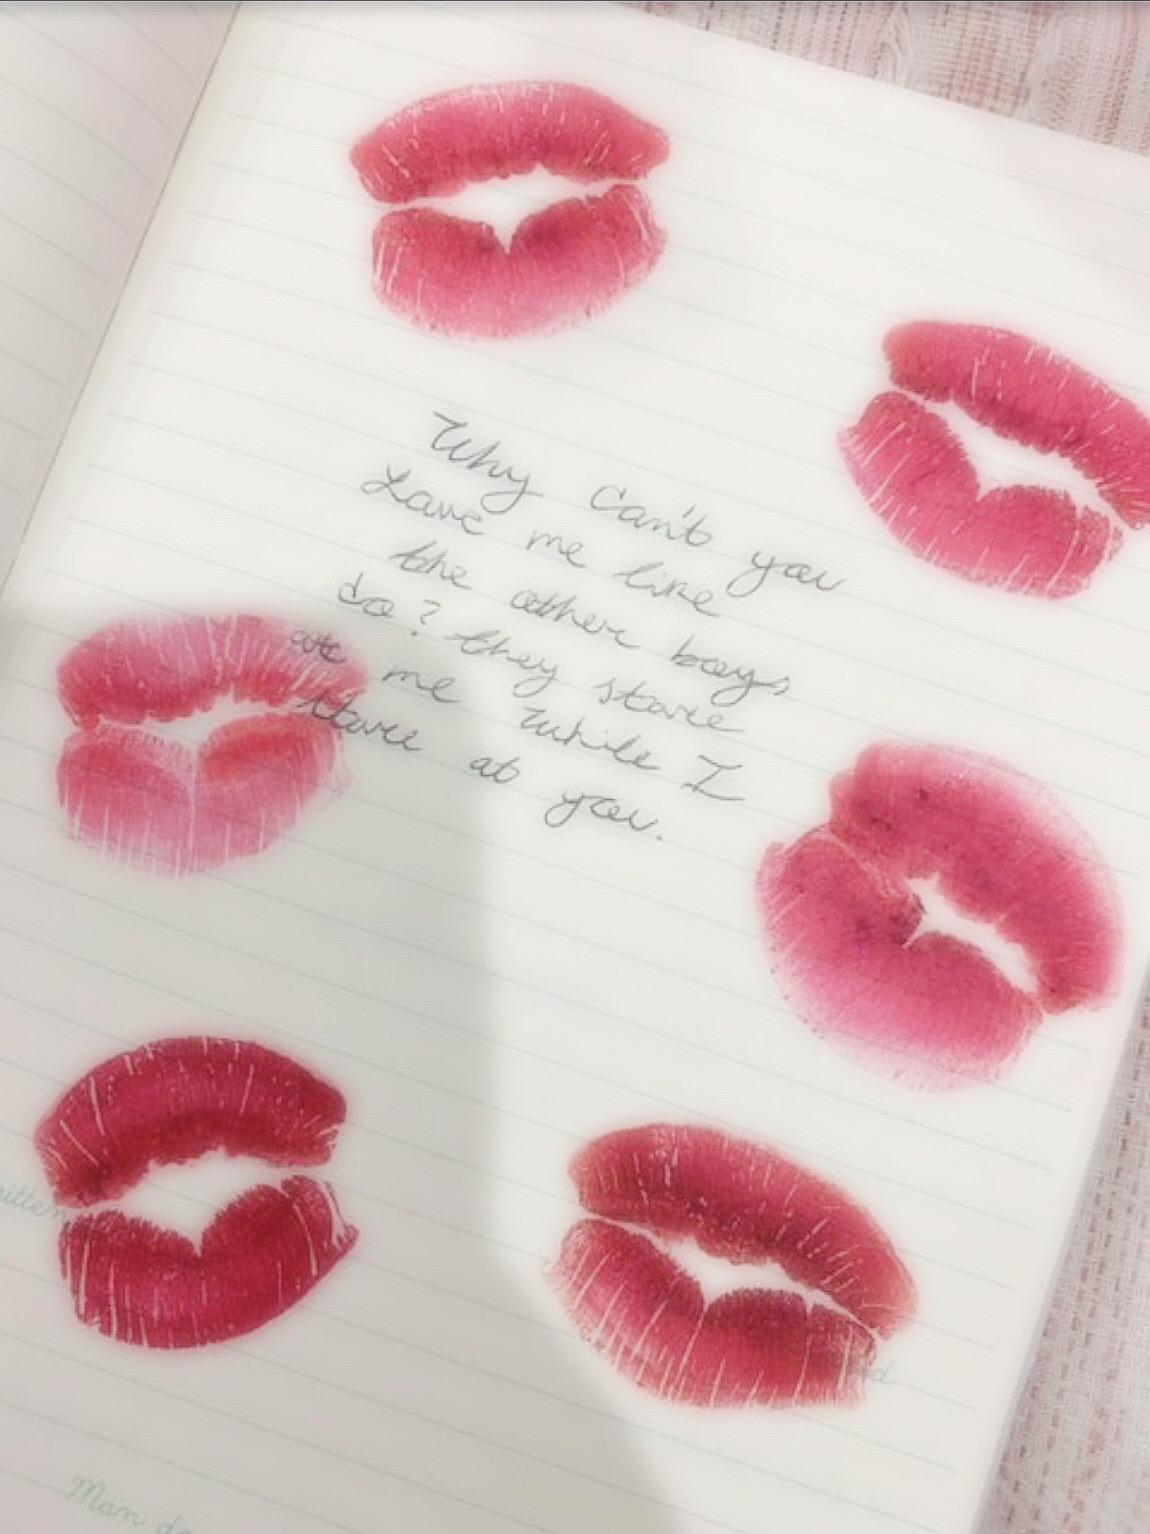 Why Can't you
Love me like
the other boys
do? they stare
at me while I
stare at you.
Man